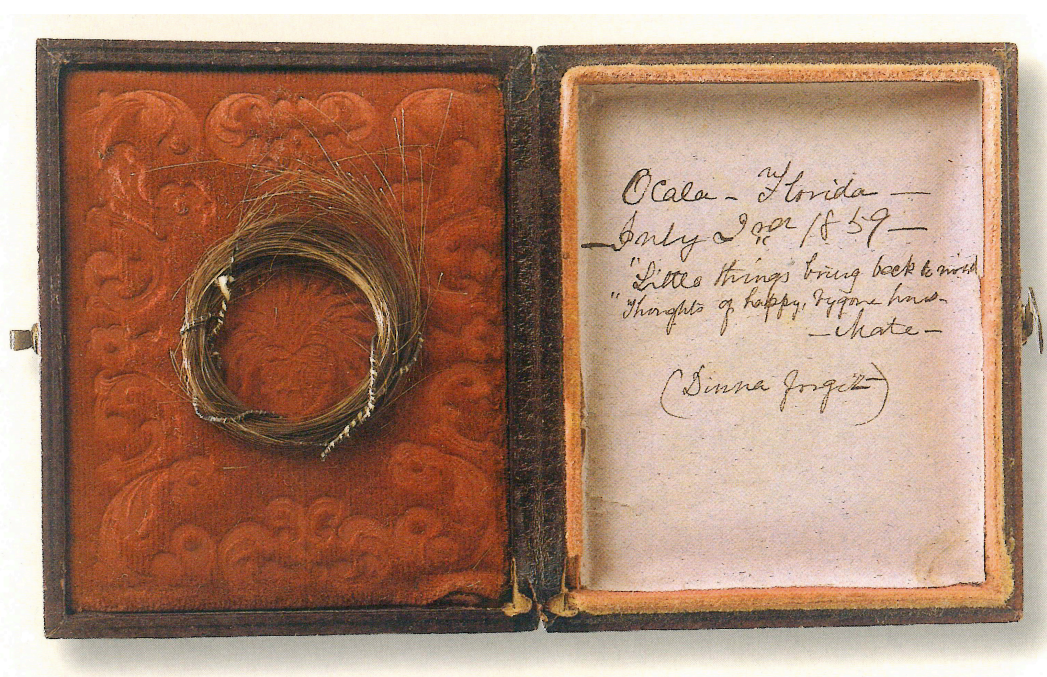 Ocala - Florida -
- July 2nd 1859 -
"Little things bring back to mind
"Thoughts of happy, bygone hours -
- Mate -
(Dinna forget)